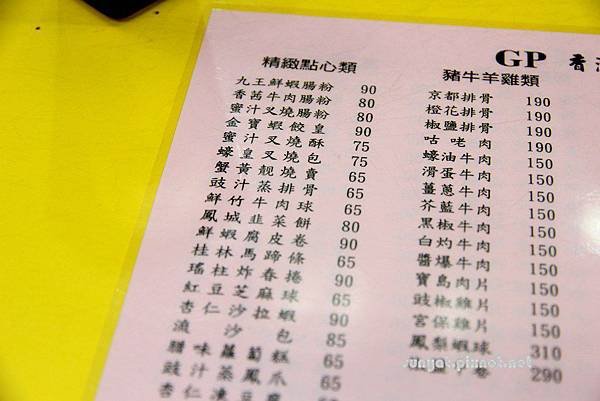 GP 香
精緻點心類
九王鮮蝦腸粉 90
香茜牛肉腸粉 80
蜜汁叉燒腸粉 80
金寶蝦餃皇 90
蜜汁叉燒酥 75
蠔皇叉燒包 75
蟹黃靚燒賣 65
豉汁蒸排骨 65
鮮竹牛肉球 65
鳳城韭菜餅 80
鮮蝦腐皮卷 90
桂林馬蹄條 65
瑤柱炸春捲 90
紅豆芝麻球 65
杏仁沙拉蝦 90
流沙包 85
臘味蘿蔔糕 65
豉汁蒸鳳爪 65
杏仁凍豆腐
豬牛羊雞類
京都排骨 190
橙花排骨 190
椒鹽排骨 190
咕咾肉 190
蠔油牛肉 150
滑蛋牛肉 150
薑蔥牛肉 150
芥藍牛肉 150
黑椒牛肉 150
白灼牛肉 150
醬爆牛肉 150
寶島肉片 150
豉椒雞片 150
宮保雞片 150
鳳梨蝦球 310
290